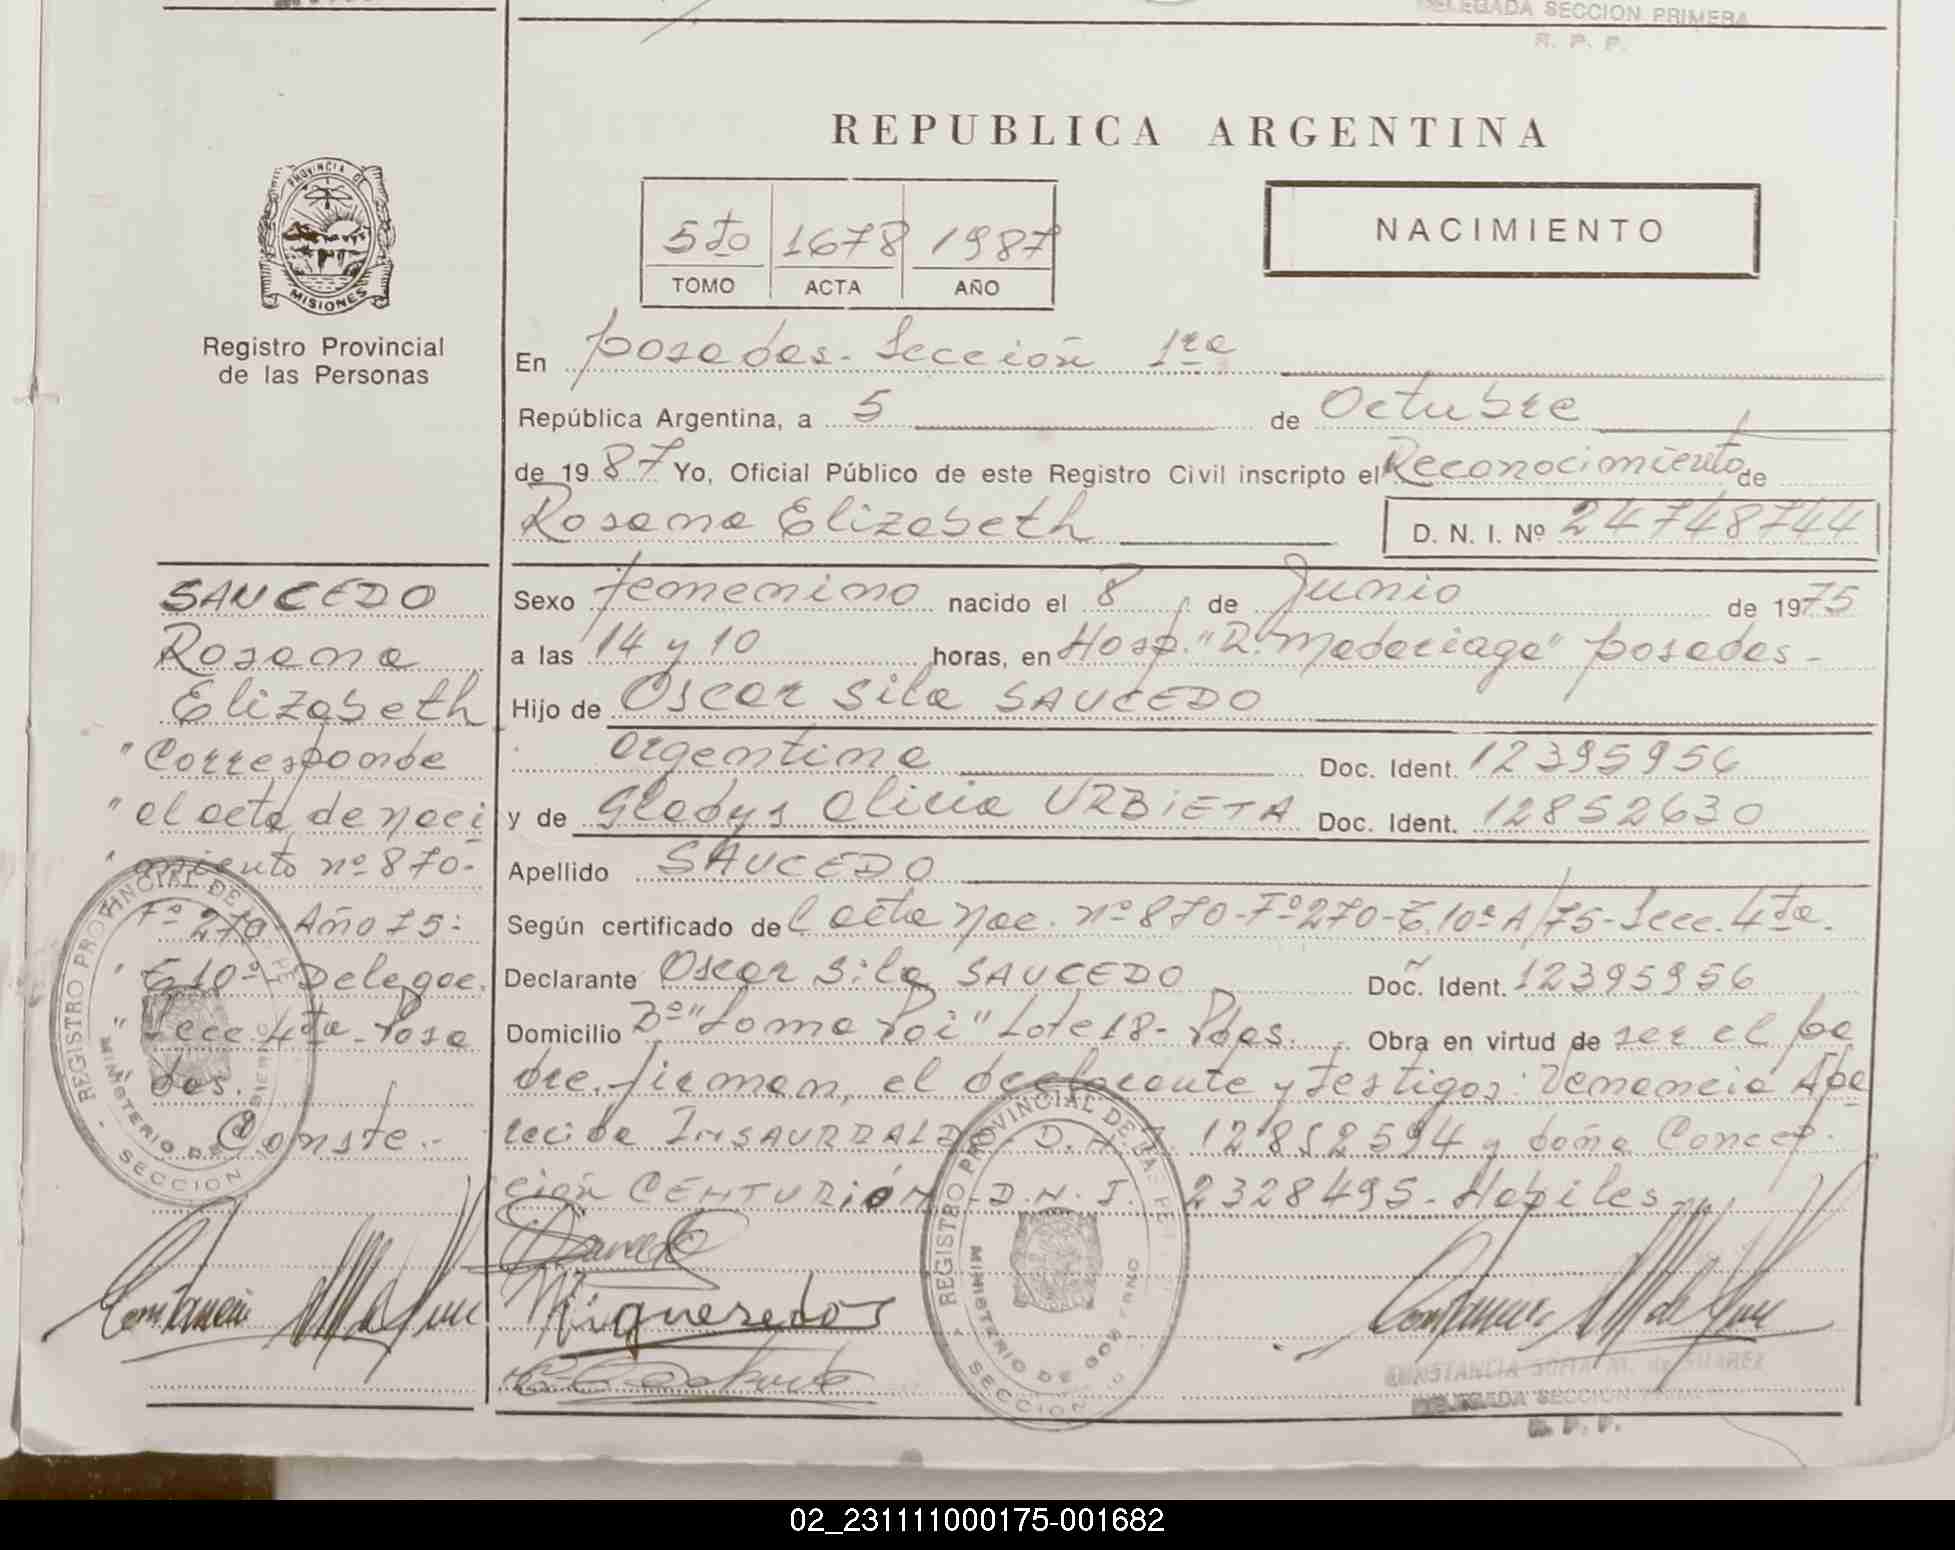 DELEGADA SECCION PRIMERA
R. P. P.
REPUBLICA ARGENTINA
NACIMIENTO
5to 1678 1987
TOMO ACTA AÑO
PROVINCIA DE
MISIONES
Registro Provincial
de las Personas
En Posadas - Sección 1ra
República Argentina, a 5 de Octubre
de 1987 Yo, Oficial Público de este Registro Civil inscripto el Reconocimiento de
Rosana Elizabeth D. N. I. Nº 24748744
Sexo femenino nacido el 8 de Junio de 1975
a las 14 y 10 horas, en Hosp. "R. Madariaga" Posadas -
Hijo de Oscar Sila SAUCEDO
argentina Doc. Ident. 12395956
y de Gladys Alicia URBIETA Doc. Ident. 12852630
Apellido SAUCEDO
Según certificado del acta nac. nº 870 - Fº 270 - T. 10º A/75 - Secc. 4ta.
Declarante Oscar Sila SAUCEDO Doc. Ident. 12395956
Domicilio Bº "Loma Poi" Lote 18 - Pdas. Obra en virtud de ser el pa
dre. firman, el declarante y testigos: Venancia Apa
recida INSAURRALDE - D.N.I. 12852594 y doña Concep-
ción CENTURIÓN - D.N.I. 2328495 - Hábiles
SAUCEDO
Rosana
Elizabeth
"Corresponde
"al acta de naci
"miento nº 870-
Fº 270 - Año 75:
" T. 10º - Delegac.
" Secc. 4ta - Posa
" das.
Conste.-
REGISTRO PROVINCIAL DE LAS PE
MINISTERIO DE GOBIERNO
SECCION
REGISTRO PROVINCIAL DE LAS PE
MINISTERIO DE GOBIERNO
SECCION
CONSTANCIA SOFIA M. de SUAREZ
DELEGADA SECCION PRIMERA
R. P. P.
02_231111000175-001682